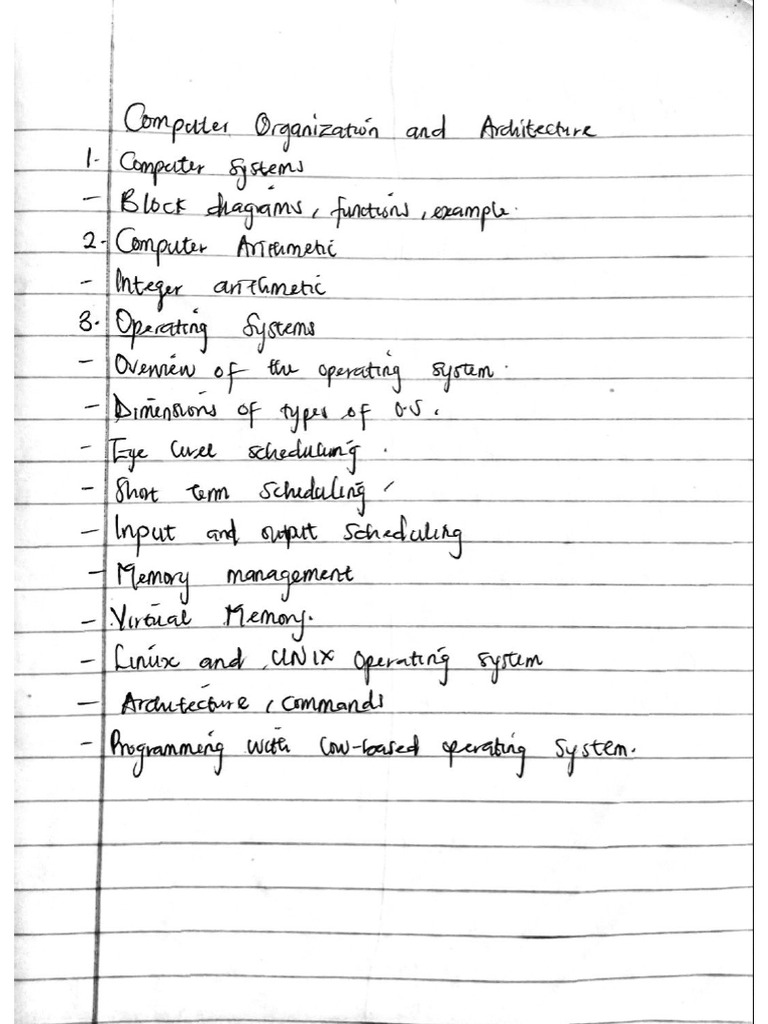 Computer Organization and Architecture
1. Computer Systems
- Block diagrams, functions, example.
2. Computer Arithmetic
- Integer arithmetic
3. Operating Systems
- Overview of the operating system.
- Dimensions of types of O.S.
- Eye level scheduling.
- Short term scheduling
- Input and output scheduling
- Memory management
- Virtual Memory.
- Linux and UNIX Operating system
- Architecture, commands
- Programming with low-based operating system.